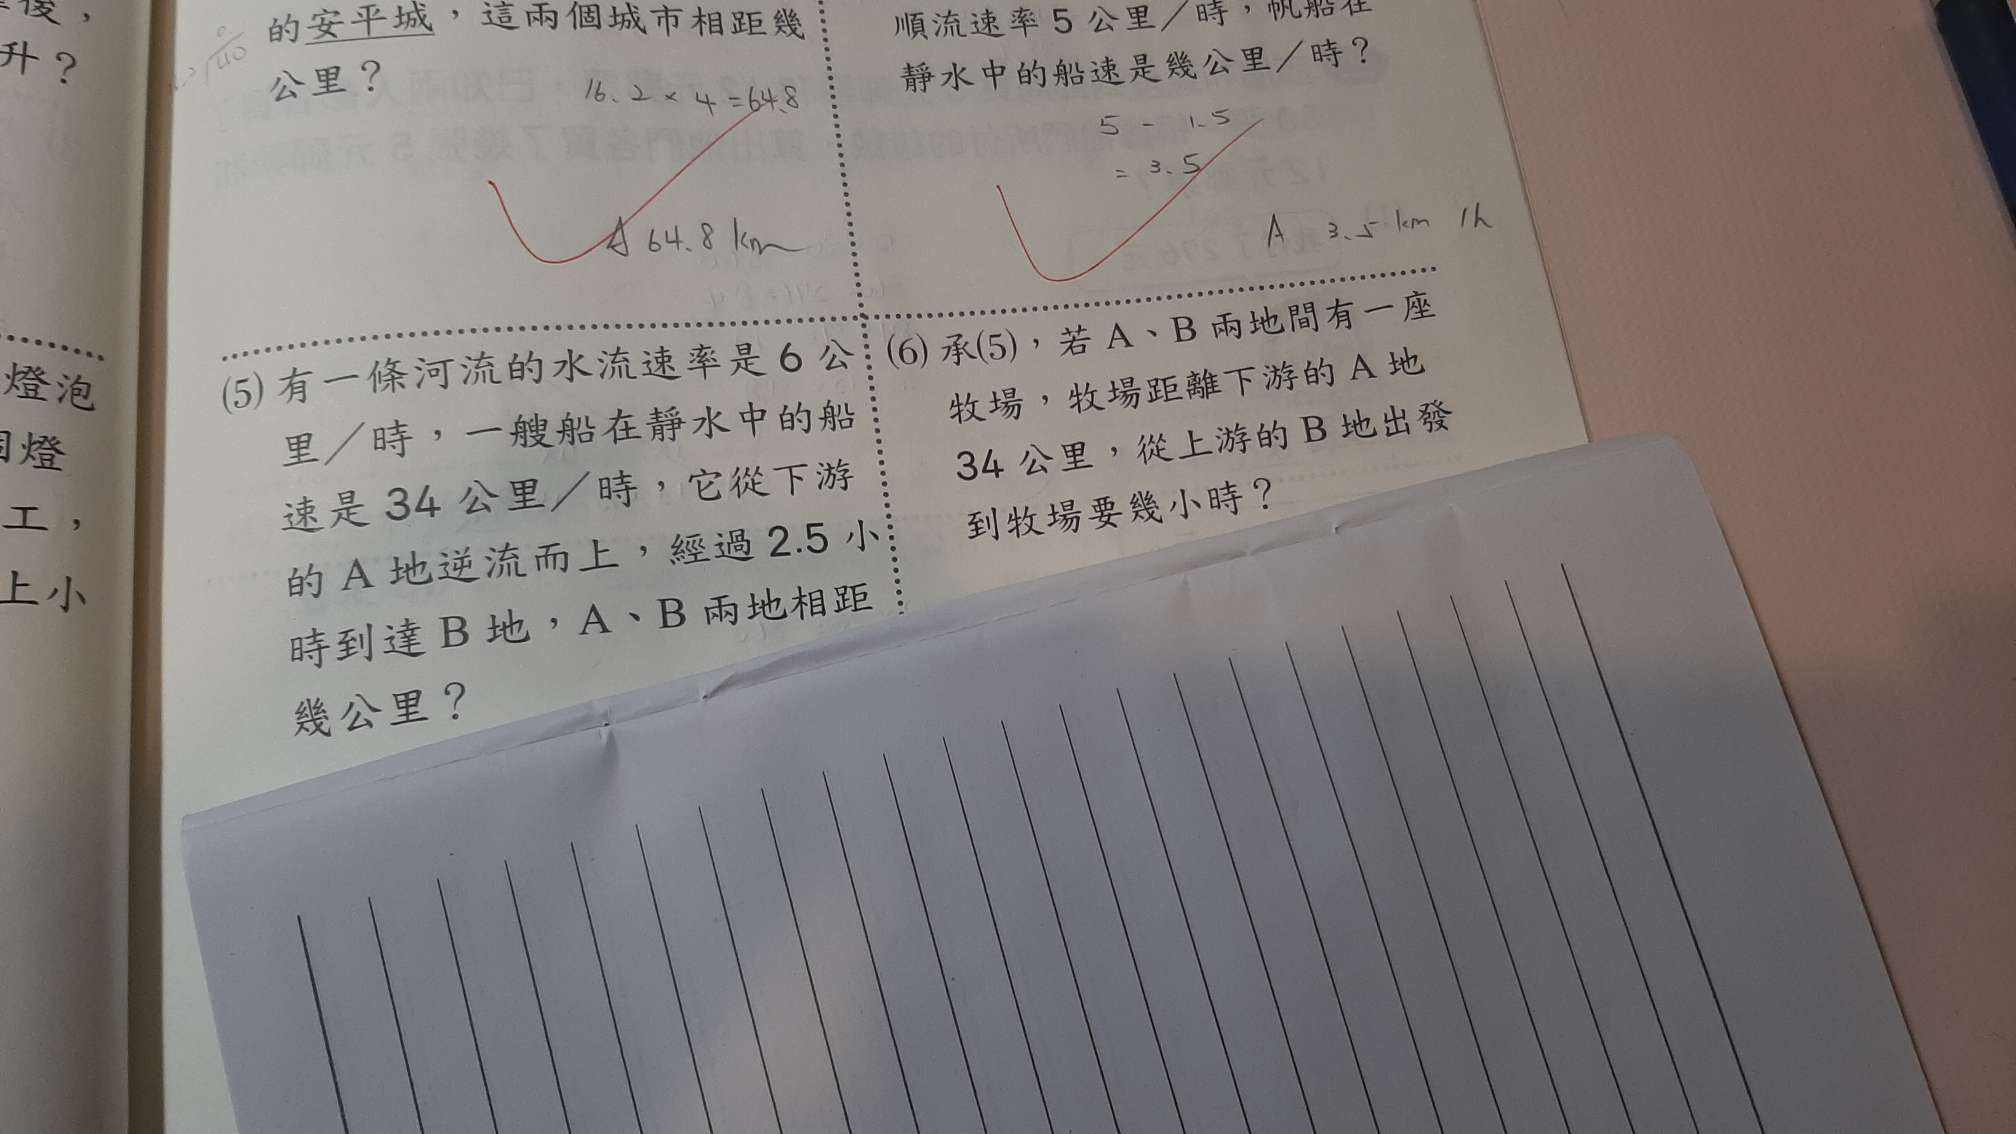 升？
的安平城，這兩個城市相距幾
公里？
16.2 × 4 = 64.8
A 64.8 km
順流速率 5 公里／時，帆船在
靜水中的船速是幾公里／時？
5 - 1.5
= 3.5
A 3.5 km /h
燈泡
燈
工，
上小
(5) 有一條河流的水流速率是 6 公
里／時，一艘船在靜水中的船
速是 34 公里／時，它從下游
的 A 地逆流而上，經過 2.5 小
時到達 B 地，A、B 兩地相距
幾公里？
(6) 承(5)，若 A、B 兩地間有一座
牧場，牧場距離下游的 A 地
34 公里，從上游的 B 地出發
到牧場要幾小時？